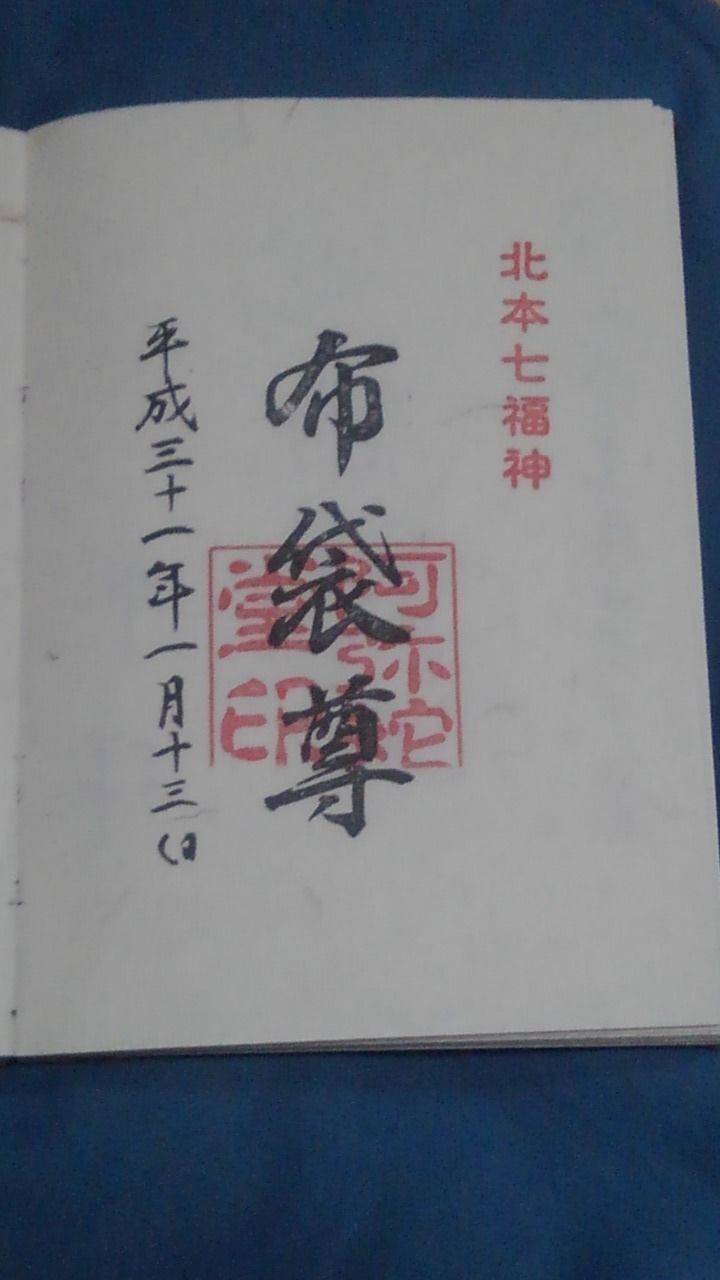 北本七福神
布袋尊
阿弥陀
堂印
平成三十一年一月十三日